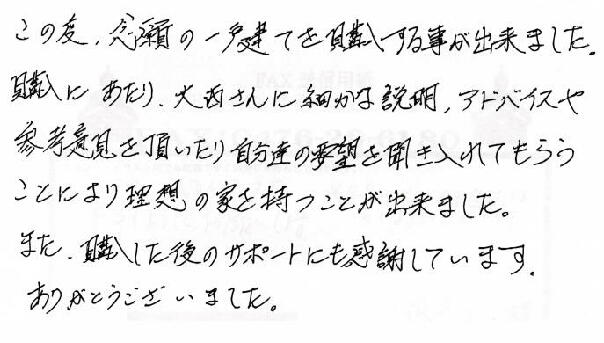 この度、念願の一戸建てを購入する事が出来ました。
購入にあたり、大西さんに細かな説明、アドバイスや
参考意見を頂いたり自分達の要望を聞き入れてもらう
ことにより理想の家を持つことが出来ました。
また、購入した後のサポートにも感謝しています。
ありがとうございました。